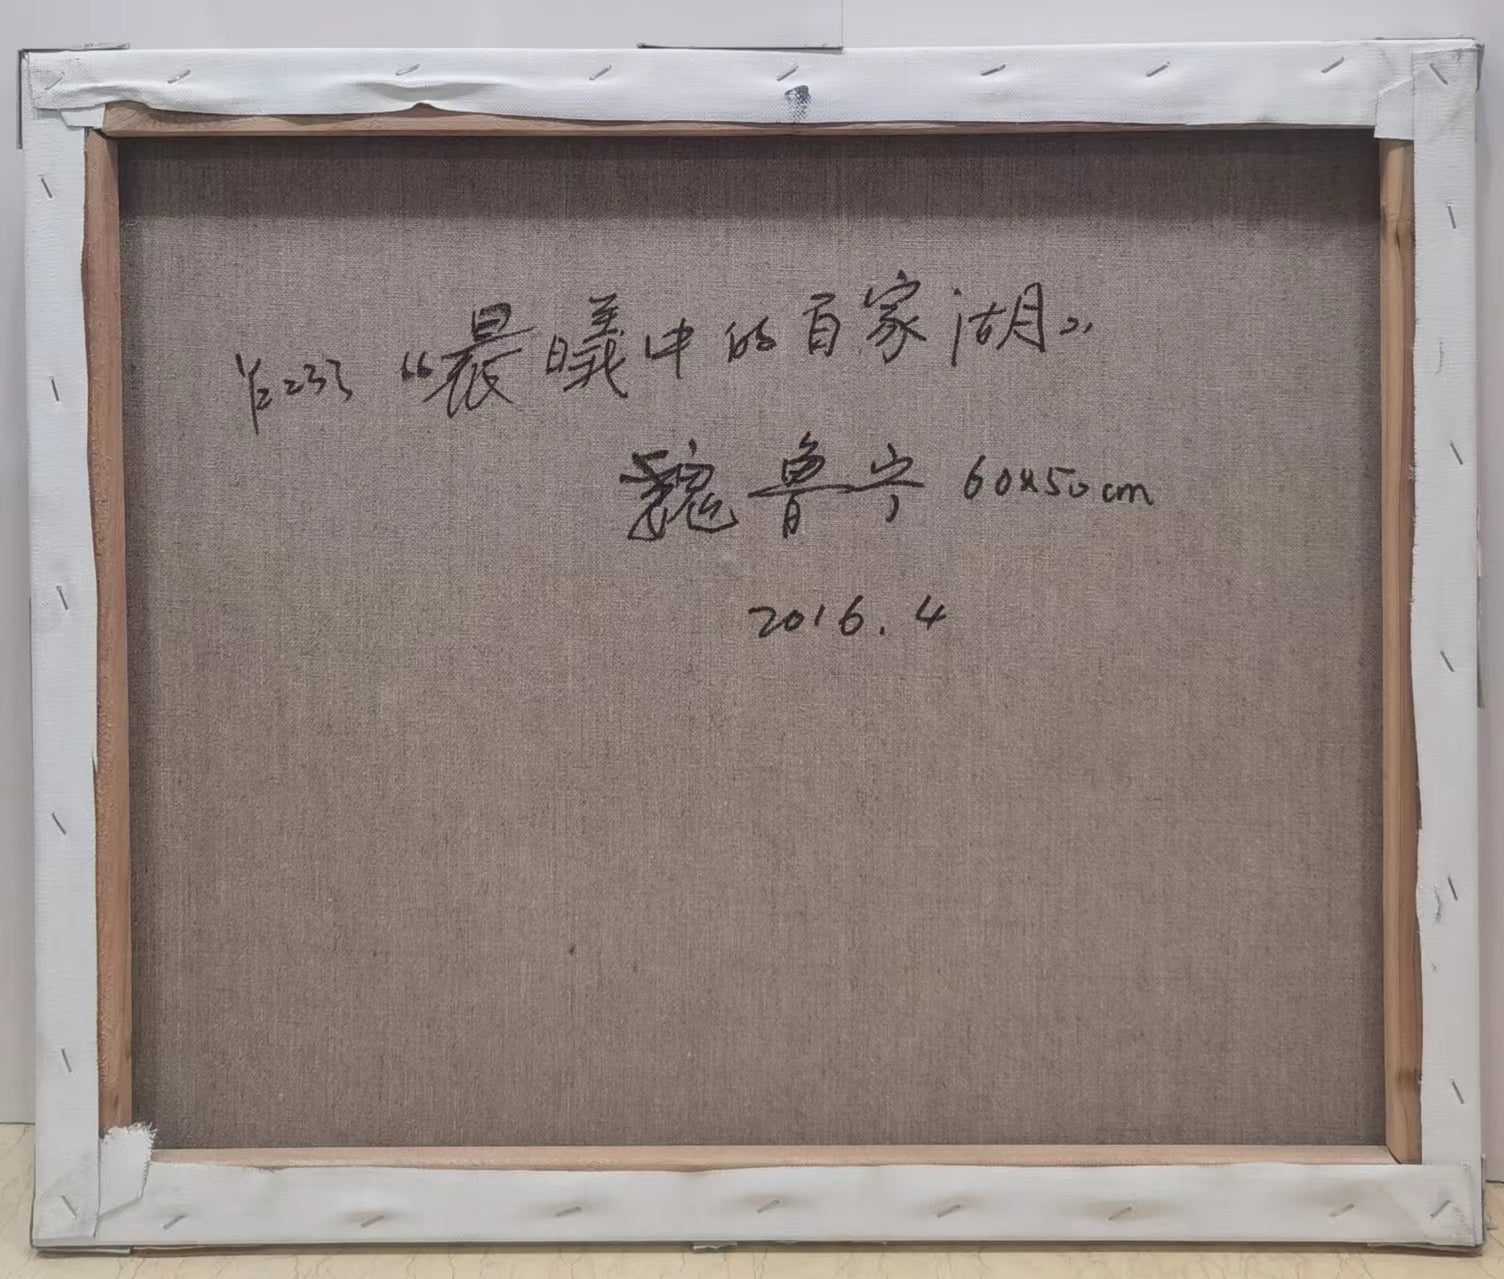 "晨曦中的百家湖"
魏鲁宁 60x50cm
2016.4